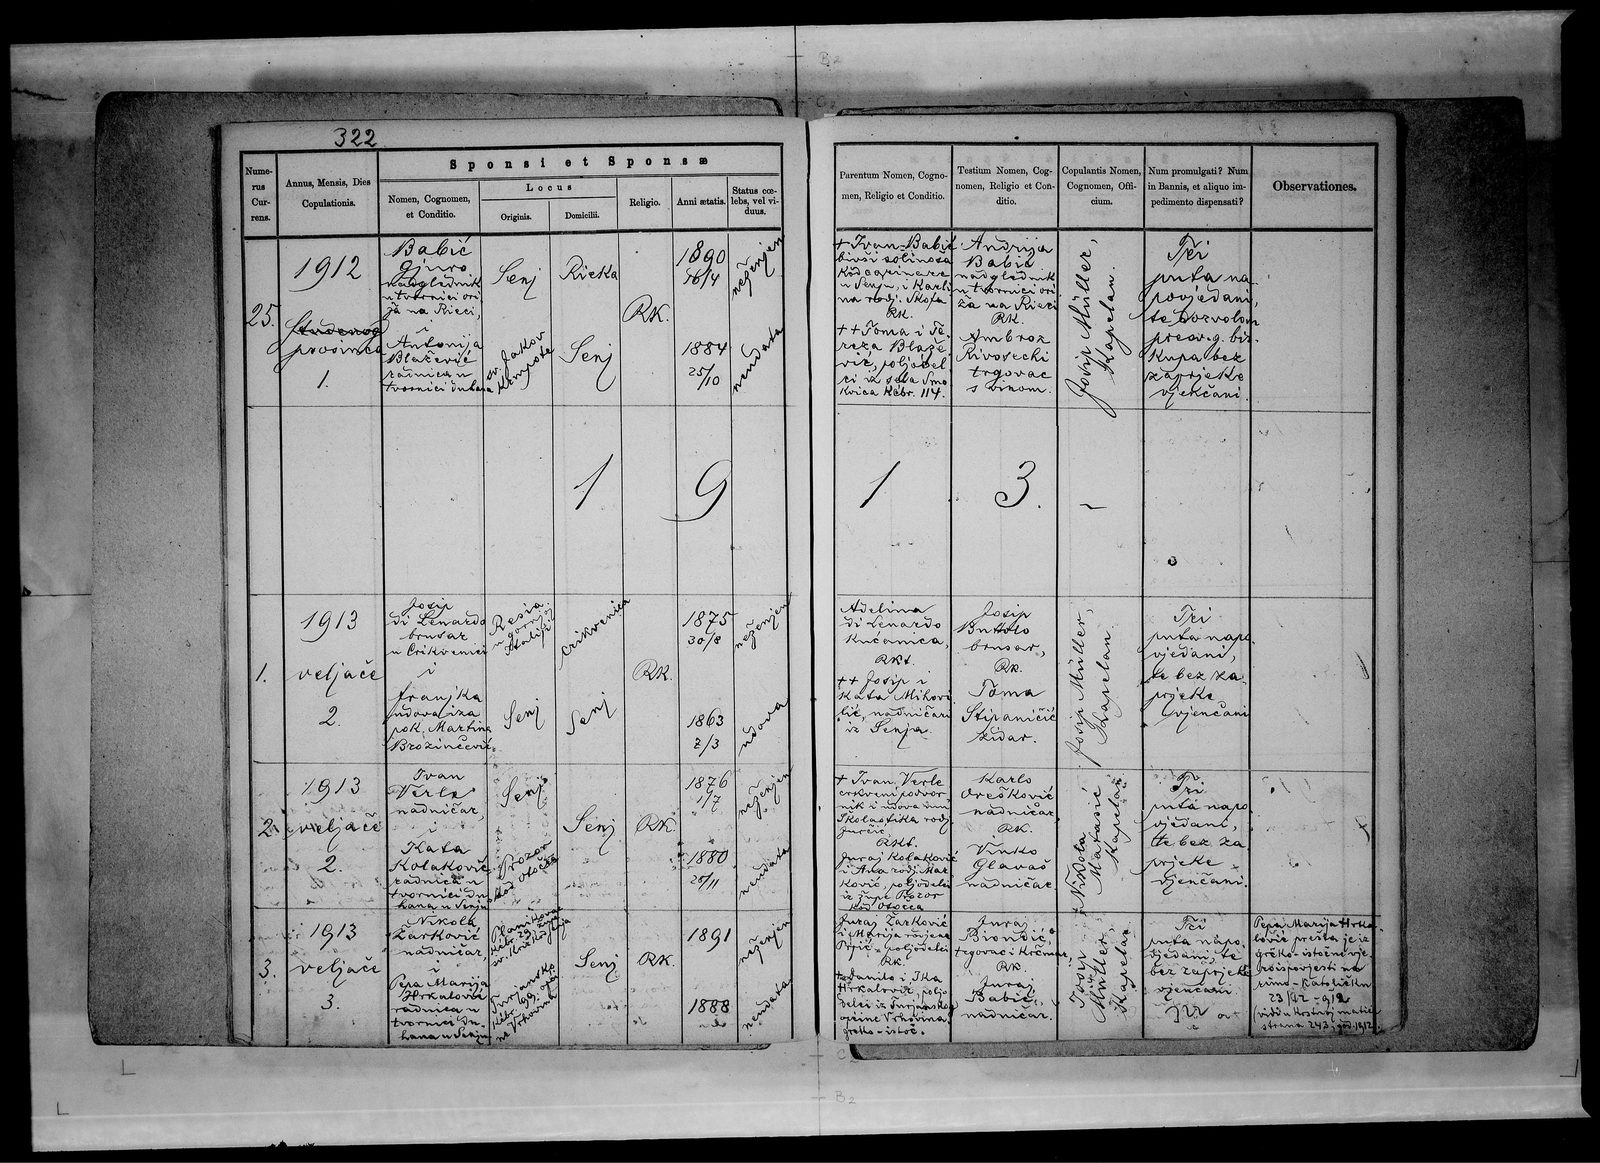 322
Sponsi et Sponsæ
Nume-
rus
Cur-
rens.
Annus, Mensis, Dies
Copulationis.
Nomen, Cognomen,
et Conditio.
Locus
Originis.
Domicilii.
Religio.
Anni ætatis.
Status cœ-
lebs, vel vi-
duus.
Parentum Nomen, Cogno-
men, Religio et Conditio.
Testium Nomen, Cog-
nomen, Religio et Con-
ditio.
Copulantis Nomen,
Cognomen, Offi-
cium.
Num promulgati? Num
in Bannis, et aliquo im-
pedimento dispensati?
Observationes.
25.
1912
Studenog
prosinca
1.
Babić
Gjuro
nadglednik
u tvornici ori-
ža na Rieci,
i
Antonija
Blažević
radnica u
tvornici duhana
Senj
sv. Jakov
Krmpote
Rieka
Senj
RK.
1890
16/4
1884
25/10
neženjen
neudata
+ Ivan Babić
bivši
u Senju, i Karli-
na rodj.
RK.
++ Toma i Te-
reza Blaže-
vić, poljodel-
ci iz sela Smo-
kvica Kćbr. 114.
Andrija
Babić
nadglednik
u tvornici ori-
ža na Rieci
RK.
Ambroz
Rivosechi
trgovac
s vinom.
Josip Müller,
Kapelan.
Tri
puta na-
povjedani,
te dozvolom
preuv. g. bis-
kupa bez
zaprjeke
vjenčani.
1 9 1 3.
1.
1913
veljače
2.
Josip
di Lenardo
brusar
u Crikvenici
i
Franjka
udova iza
pok. Martina
Brozinčević
Resia
u gornjoj
Italiji
Senj
Crikvenica
Senj
RK.
1875
30/8
1863
2/3
neženjen
udova
Adelina
di Lenardo
kućanica,
RKt.
++ Josip i
Kata Mihovi-
lić, nadničari
iz Senja.
Josip
Buttolo
brusar,
RK.
Toma
Stipaničić
zidar.
Josip Müller,
Kapelan.
Tri
puta napo-
vjedani,
te bez za-
prjeke
vjenčani
2.
1913
veljače
2.
Ivan
Verle
nadničar,
i
Kata
Kolaković
radnica u
tvornici du-
hana u Senju
Senj
Prozor
kod Otočca
Senj
RK.
1876
1/7
1880
25/11
neženjen
neudata
+ Ivan Verle
crkveni podvor-
nik i udova mu
Skolastika rodj.
Jurčić.
RKt.
Juraj Kolaković
i Ana rodj. Mar-
ković, poljodelci
iz župe Prozor
kod Otočca
Karlo
Orešković
nadničar,
RK.
Vinko
Glavaš
nadničar.
Nikola
Matašić
Kapelan
Tri
puta napo-
vjedani,
te bez za-
prjeke
vjenčani.
3.
1913
veljače
3.
Nikola
Žarković
nadničar,
i
Pepa Marija
Hrkalović
radnica u
tvornici du-
hana u Senju
Kćbr. 29, župe
sv. Križ
Turjansko
Kćbr. 69, opći-
ne Vrhovina
Senj
RK.
1891
1888
neženjen
neudata
Juraj Žarković
i Marija rodjena
Prpić - poljodelci
RK.
Danilo i Ika
Hrkalović, poljo-
delci iz Turjanska
općine Vrhovina,
grčko-istoč.
Juraj
Biondić,
trgovac i krčmar
RK.
Juraj
Babić,
nadničar.
Josip
Müller,
Kapelan
Tri
puta napo-
vjedani, te
bez zaprjeke
vjenčani.
Pepa Marija Hrka-
lović prešla je iz
grčko-istočne vje-
roispovjesti na
rimo-katoličku
23/12-912
(vidi u krstnoj matici
strana 243. god. 1912.